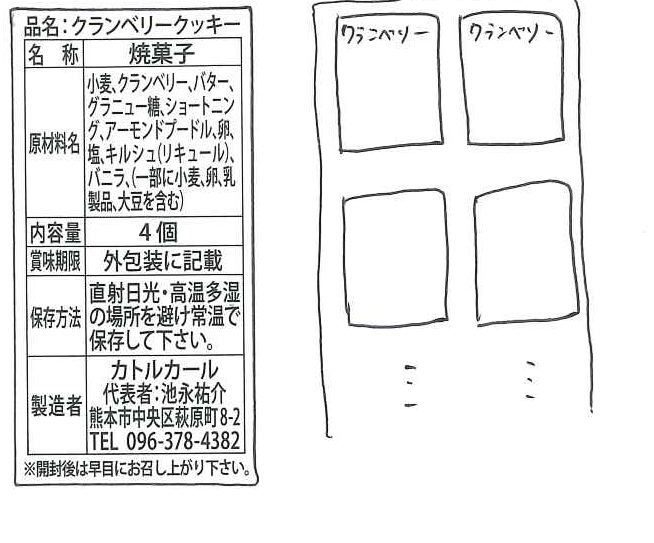 品名：クランベリークッキー
名 称 焼菓子
原材料名
小麦、クランベリー、バター、
グラニュー糖、ショートニン
グ、アーモンドプードル、卵、
塩、キルシュ(リキュール)、
バニラ、(一部に小麦、卵、乳
製品、大豆を含む)
内容量 4個
賞味期限 外包装に記載
保存方法
直射日光・高温多湿
の場所を避け常温で
保存して下さい。
製造者
カトルカール
代表者：池永祐介
熊本市中央区萩原町8-2
TEL 096-378-4382
※開封後は早目にお召し上がり下さい。
クランベリー
クランベリー